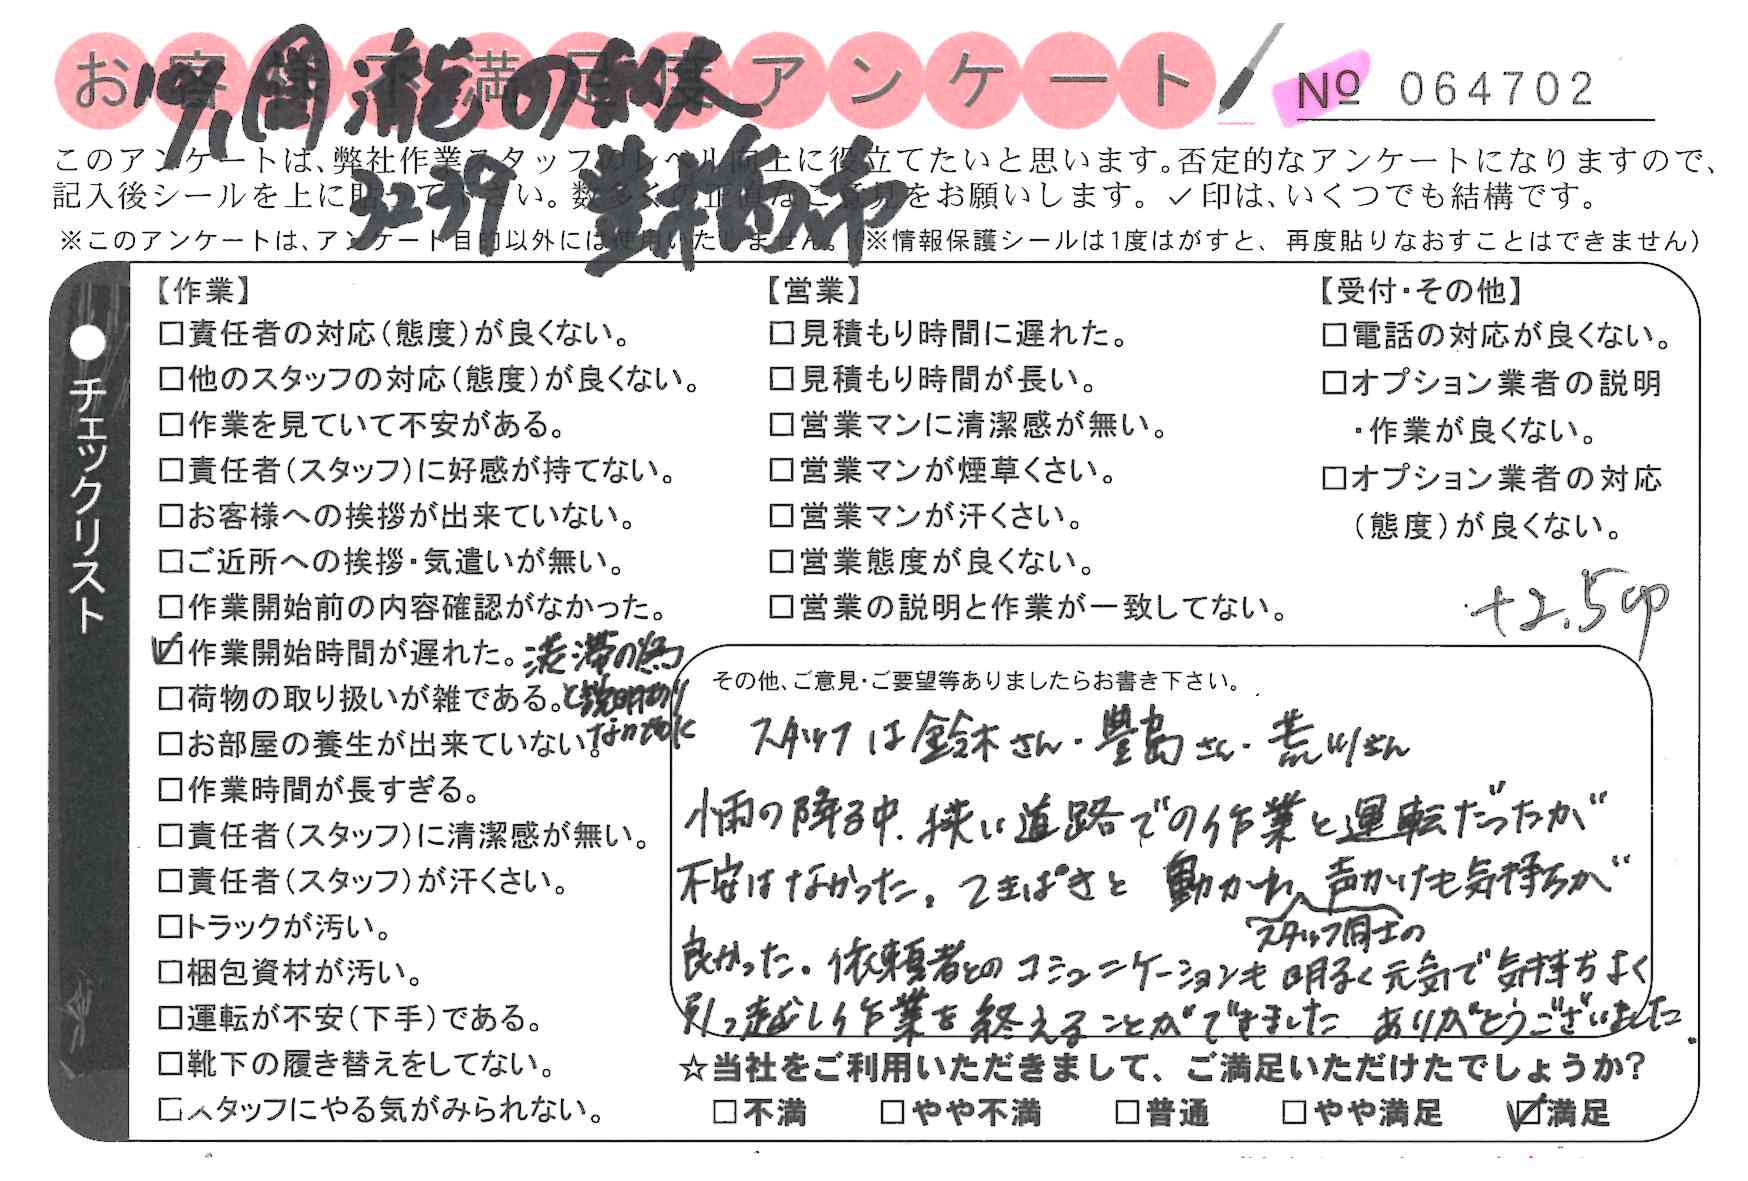 お客様不満足度アンケート
No 064702
3239 豊橋市
このアンケートは、弊社作業スタッフのレベル向上に役立てたいと思います。否定的なアンケートになりますので、
記入後シールを上に貼って下さい。数多くの正直なご意見をお願いします。✓印は、いくつでも結構です。
※このアンケートは、アンケート目的以外には使用いたしません。(※情報保護シールは1度はがすと、再度貼りなおすことはできません)
●チェックリスト
【作業】
□責任者の対応(態度)が良くない。
□他のスタッフの対応(態度)が良くない。
□作業を見ていて不安がある。
□責任者(スタッフ)に好感が持てない。
□お客様への挨拶が出来ていない。
□ご近所への挨拶・気遣いが無い。
□作業開始前の内容確認がなかった。
☑作業開始時間が遅れた。渋滞の為
□荷物の取り扱いが雑である。と説明あり
□お部屋の養生が出来ていない。
□作業時間が長すぎる。
□責任者(スタッフ)に清潔感が無い。
□責任者(スタッフ)が汗くさい。
□トラックが汚い。
□梱包資材が汚い。
□運転が不安(下手)である。
□靴下の履き替えをしてない。
□スタッフにやる気がみられない。
【営業】
□見積もり時間に遅れた。
□見積もり時間が長い。
□営業マンに清潔感が無い。
□営業マンが煙草くさい。
□営業マンが汗くさい。
□営業態度が良くない。
□営業の説明と作業が一致してない。
【受付・その他】
□電話の対応が良くない。
□オプション業者の説明
・作業が良くない。
□オプション業者の対応
(態度)が良くない。
+2.5
その他、ご意見・ご要望等ありましたらお書き下さい。
スタッフは鈴木さん・豊島さん・荒川さん
小雨の降る中、狭い道路での作業と運転だったが
不安はなかった。てきぱきと動かれ、声かけも気持ちが
スタッフ同士の
良かった。依頼者とのコミュニケーションも明るく元気で気持ちよく
引っ越し作業を終えることができました ありがとうございました。
☆当社をご利用いただきまして、ご満足いただけたでしょうか?
□不満 □やや不満 □普通 □やや満足 ☑満足